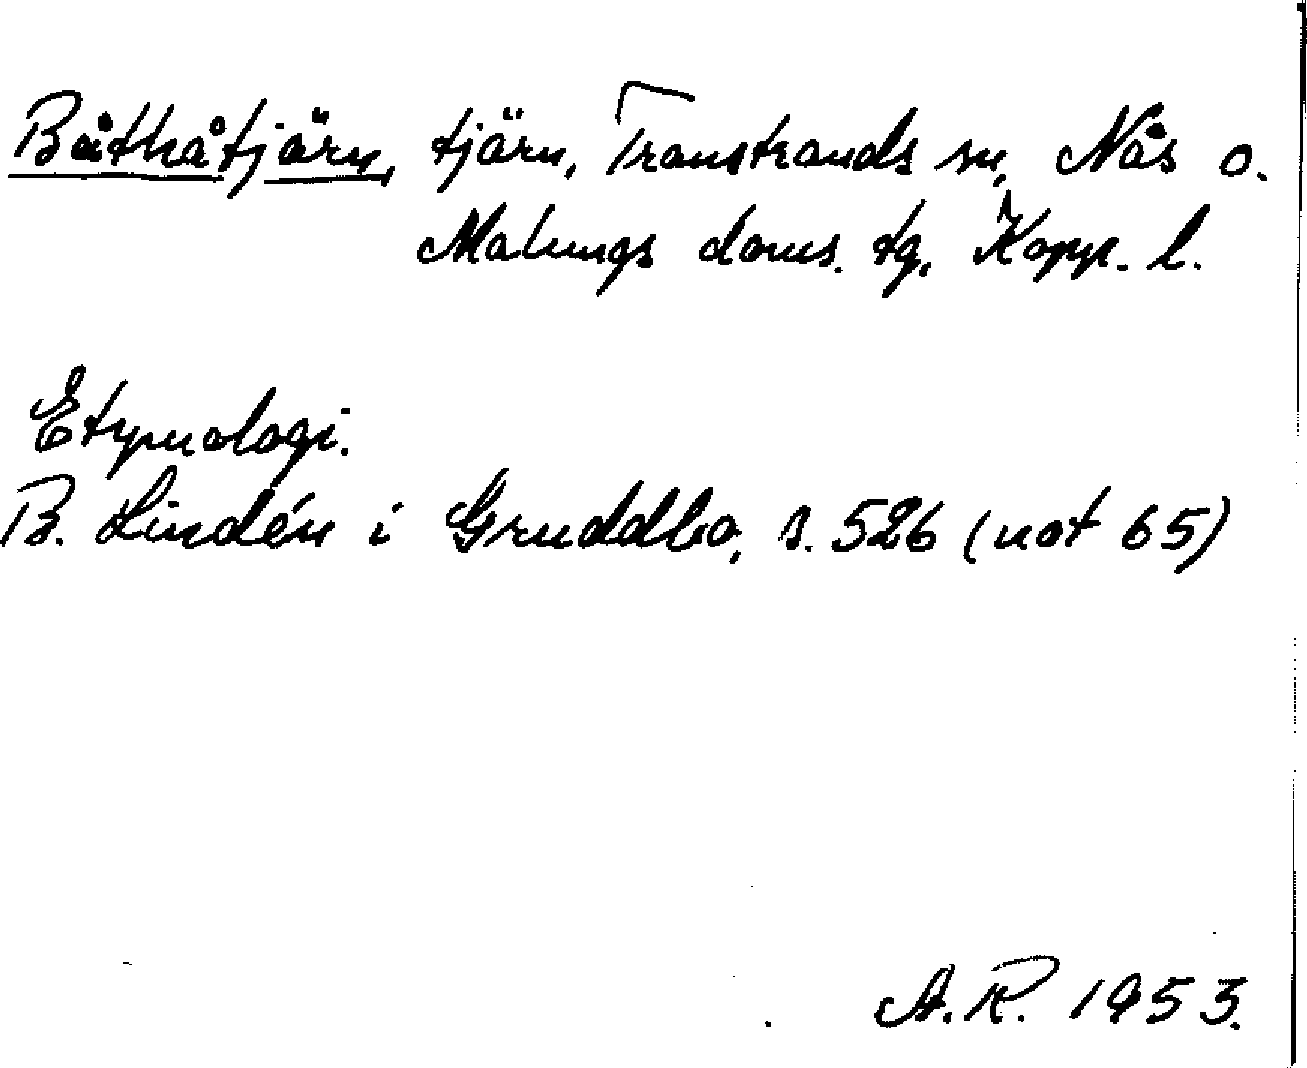 Båthåtjärn, tjärn, Transtrands sn, Nås o.
Malungs doms. tg, Kopp. l.
Etymologi.
B. Lindén i Gruddbo, s. 526 (not 65)
A.R. 1953.